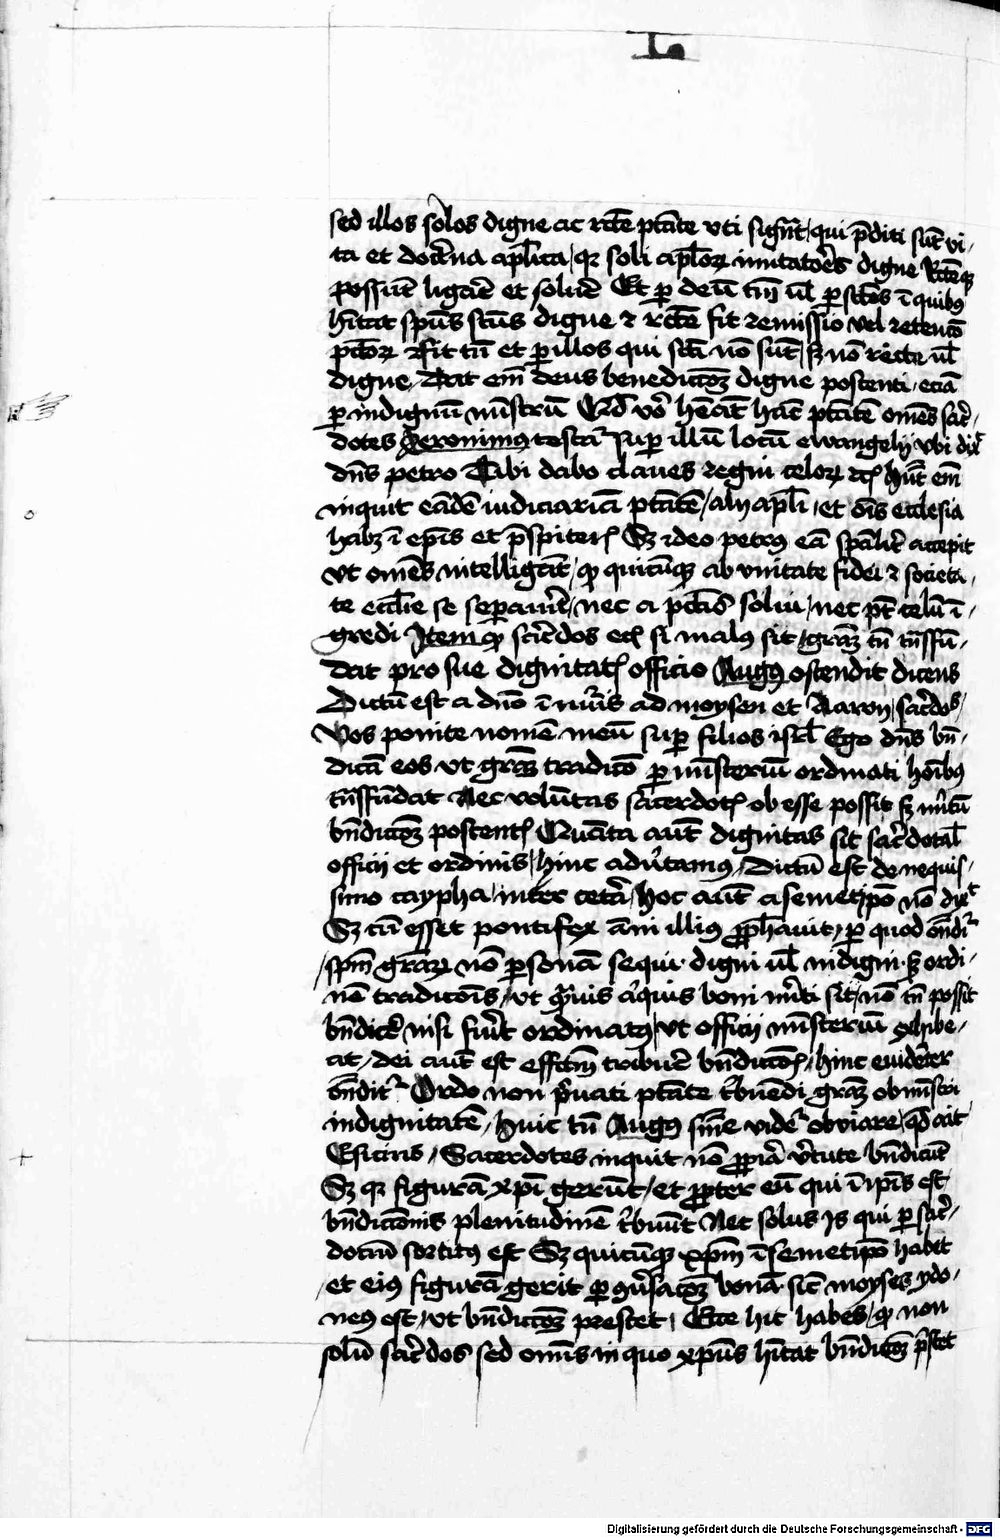 L
sed illos solos digne ac rcte ptate vti sigft / qui pditi sut vi-
ta et doctna aplica / qr soli aplor imitatoes digne rcteqz
possut ligare et soluere Et p deu tm ul p sctos i quibus
hitat spus scus digne et rcte fit remissio vel retentio
pctor fit tn et p illos qui scti no sut / sz no recte ul
digne / Dat em deus benedictoez digne poscenti / etia
p indignu mistru Qd vo heat hac ptate omes sac-
dotes Jeronimus testat sup illu locu ewangelij vbi dix
dns petro Tibi dabo claues regni celor etc hnt em
inquit eade iudiciaria ptate / alij apli / et ois ecclesia
habz i epis et pspiteris Sz ideo petrus ea spalit accepit
vt omes intelligat / qp quicuqz ab vnitate fidei et societa-
te ecclie se sepauit / nec a pctis solui / nec pt celu i-
gredi Item qp scdos eciam si malus sit / graz tn tnsfu-
dat pro sue dignitatis officio Augus ostendit dicens
Dictu est a dno i nuis ad moysen et Aaron / sacdos /
Vos ponite nomen meu sup filios isrl Ego dns bn-
dica eos vt graz traditio p misteriu ordinati hoibus
tnsfudat Nec voluntas sacerdotis ob esse possit sz mitu
bndictoez poscentis Quanta aut dignitas sit sacdotal
officij et ordinis / hinc aduertamus / Dictu est de nequis-
simo caypha / inter cetera / hoc aut a semetipo no dixit
Sz cu esset pontifex anni illius pphauit / p quod ondit
spm graz no persona sequi digni ul indigni sz ordi-
ne traditois / vt quis aliquis boni miti sit / no tn possit
bndice nisi fuit ordinatus / vt officij misteriu exhibe-
at / dei aut est effctm tribue bndictois / hinc euidenter
ondit Ordo non puati ptate tbuendi graz ob mistri
indignitate / huic tn Augus sine videt obuiare / qd ait
Esicius / Sacerdotes inquit no ppia vtute bndicut
Sz qr figura xpi gerut / et ppter eu qui i ipis est
bndictionis plenitudine tbuut Nec solus is qui p sac-
dotiu sortitus est Sz quicuqz xpm i semetipo habet
et eius figura gerit p gusatoez bona sic moyses ydo-
neus est / vt bndictoez prestet / Ecce hic habes / qp non
solu sacdos sed omis in quo xpus hitat bndictoez pstet